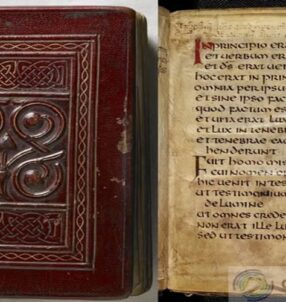 IN PRINCIPIO ERA
ET UERBUM ERA
ET DS ERAT UER
HOC ERAT IN PRIN
OMNIA PER IPSU
ET SINE IPSO FAC
QUOD FACTUM ES
ET UITA ERAT LU
ET LUX IN TENEB
ET TENEBRAE EA
HENDERUNT
FUIT HOMO MIS
CUI NOMEN ER
HIC UENIT IN TES
UT TESTIMONIUM
DE LUMINE
UT OMNES CREDE
NON ERAT ILLE LU
SED UT TESTIMO